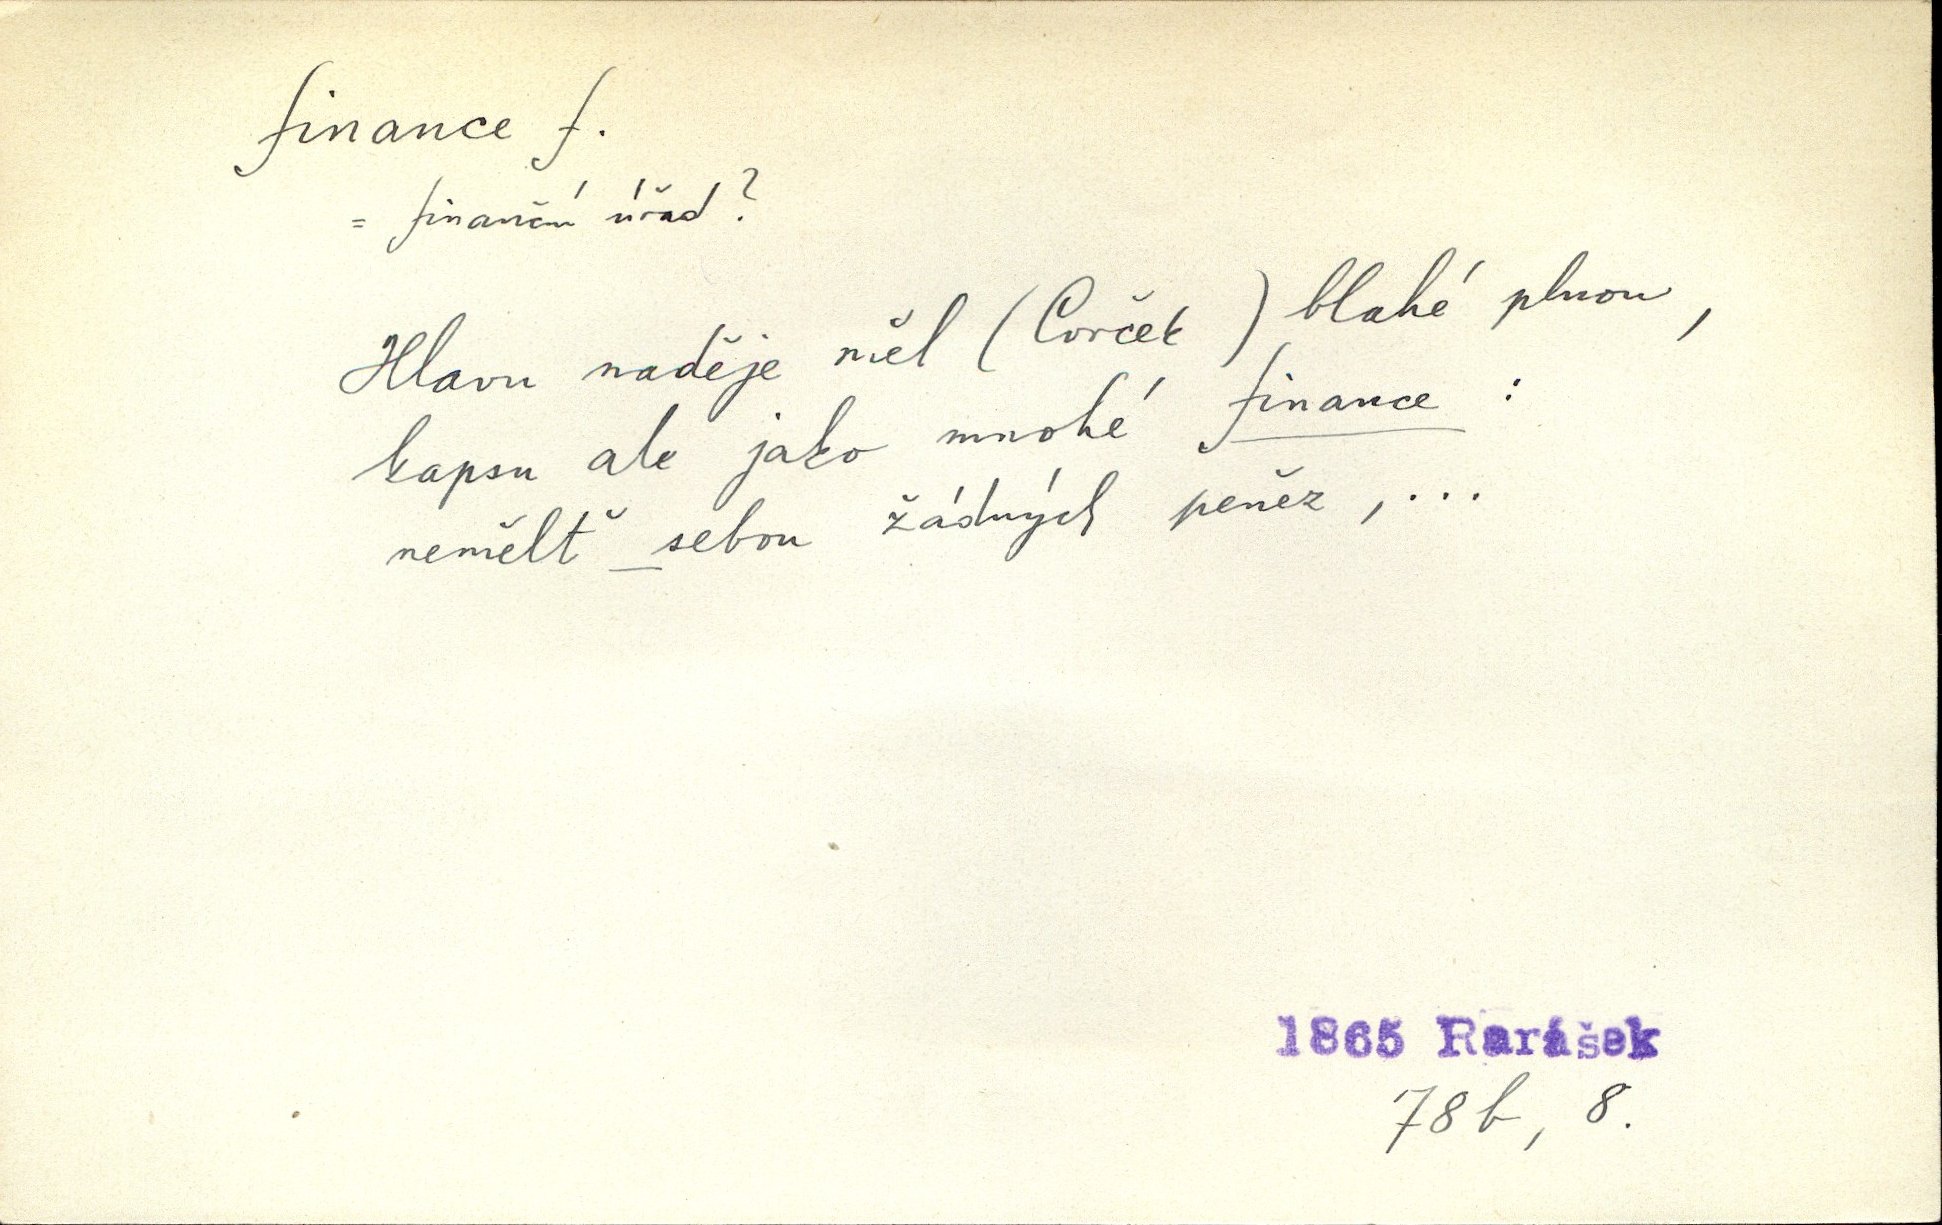 finance f.
= finanční úřad?
Hlavu naděje měl (Corček) blahé plnou,
kapsu ale jako mnohé finance:
nemělť sebou žádných peněz, ...
1865 Rarášek
78b, 8.